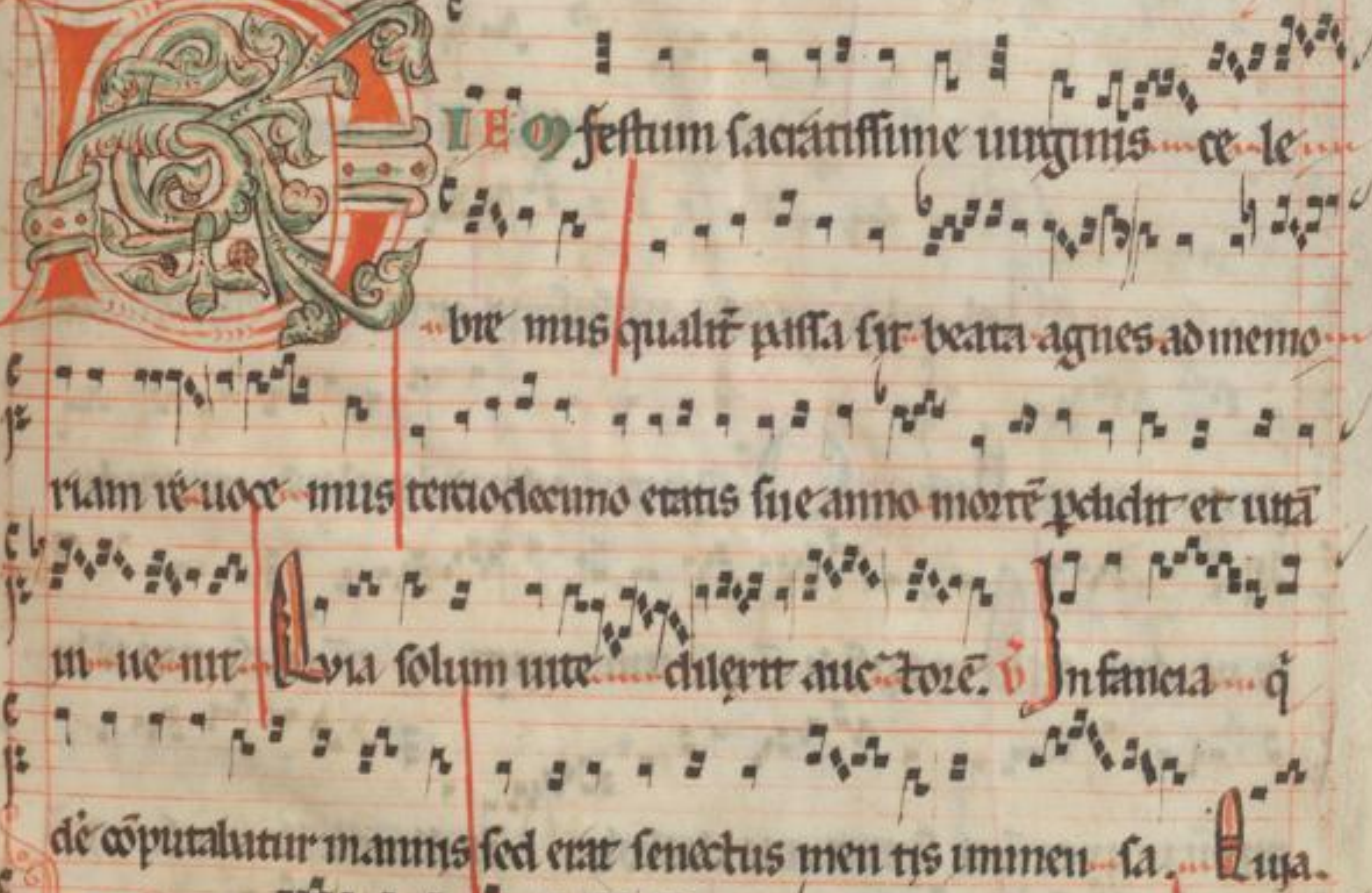 DIEM festum sacratissime uirginis ce le
bre mus qualit̄ passa sit beata agnes ad memo
riam re uoce mus terciodecimo etatis sue anno mortē ꝑdidit et uitā
in ue nit Quia solum uite dilexit auc torē. V̄ Infancia q̇
dē cōputabatur in annis sed erat senectus men tis inmen sa. Quia.